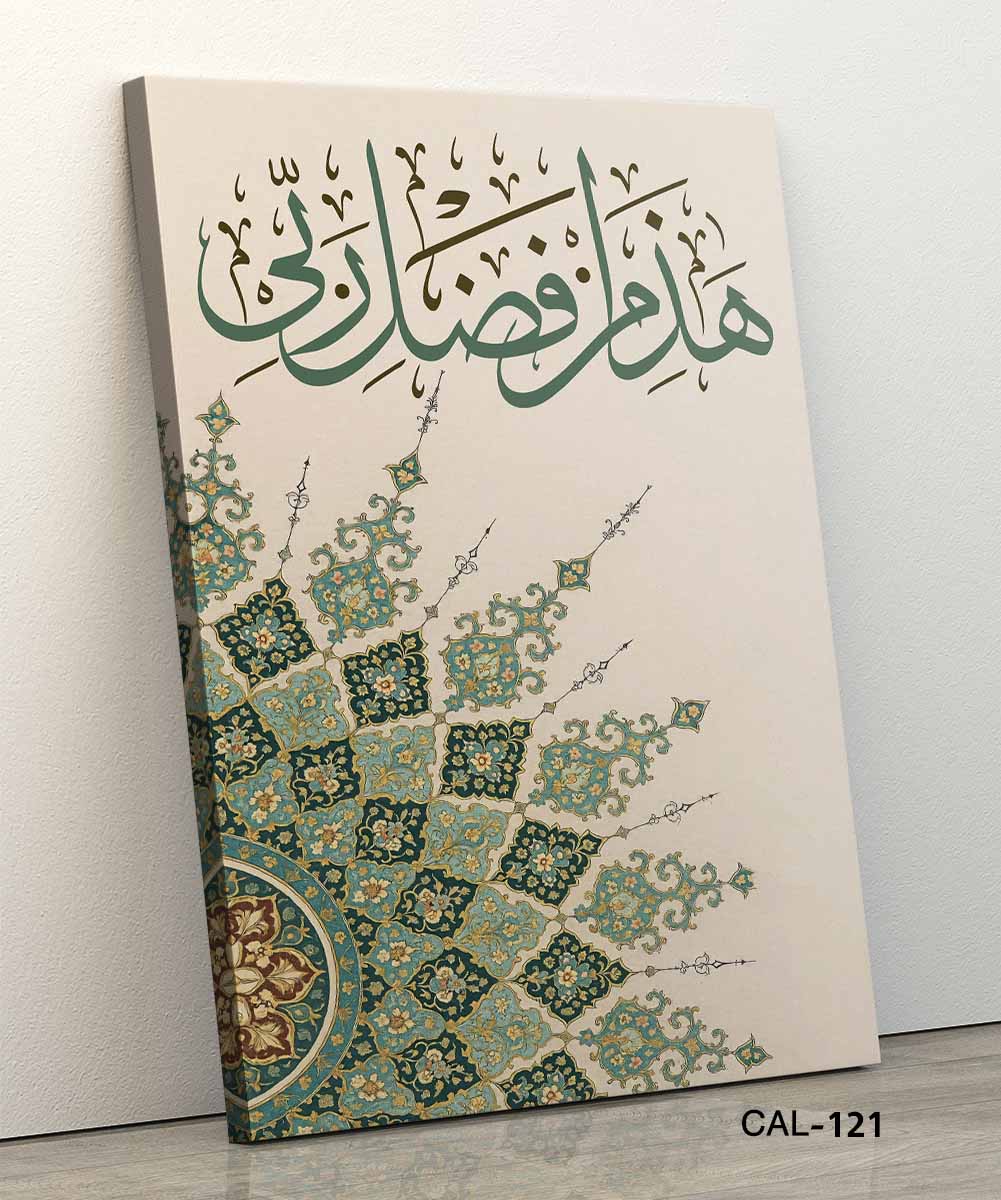 هذا من فضل ربي
CAL-121